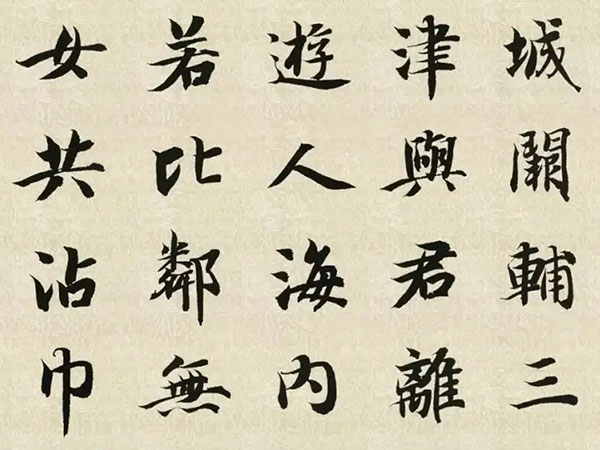 城闕輔三
津與君離
遊人海内
若比鄰無
女共沾巾